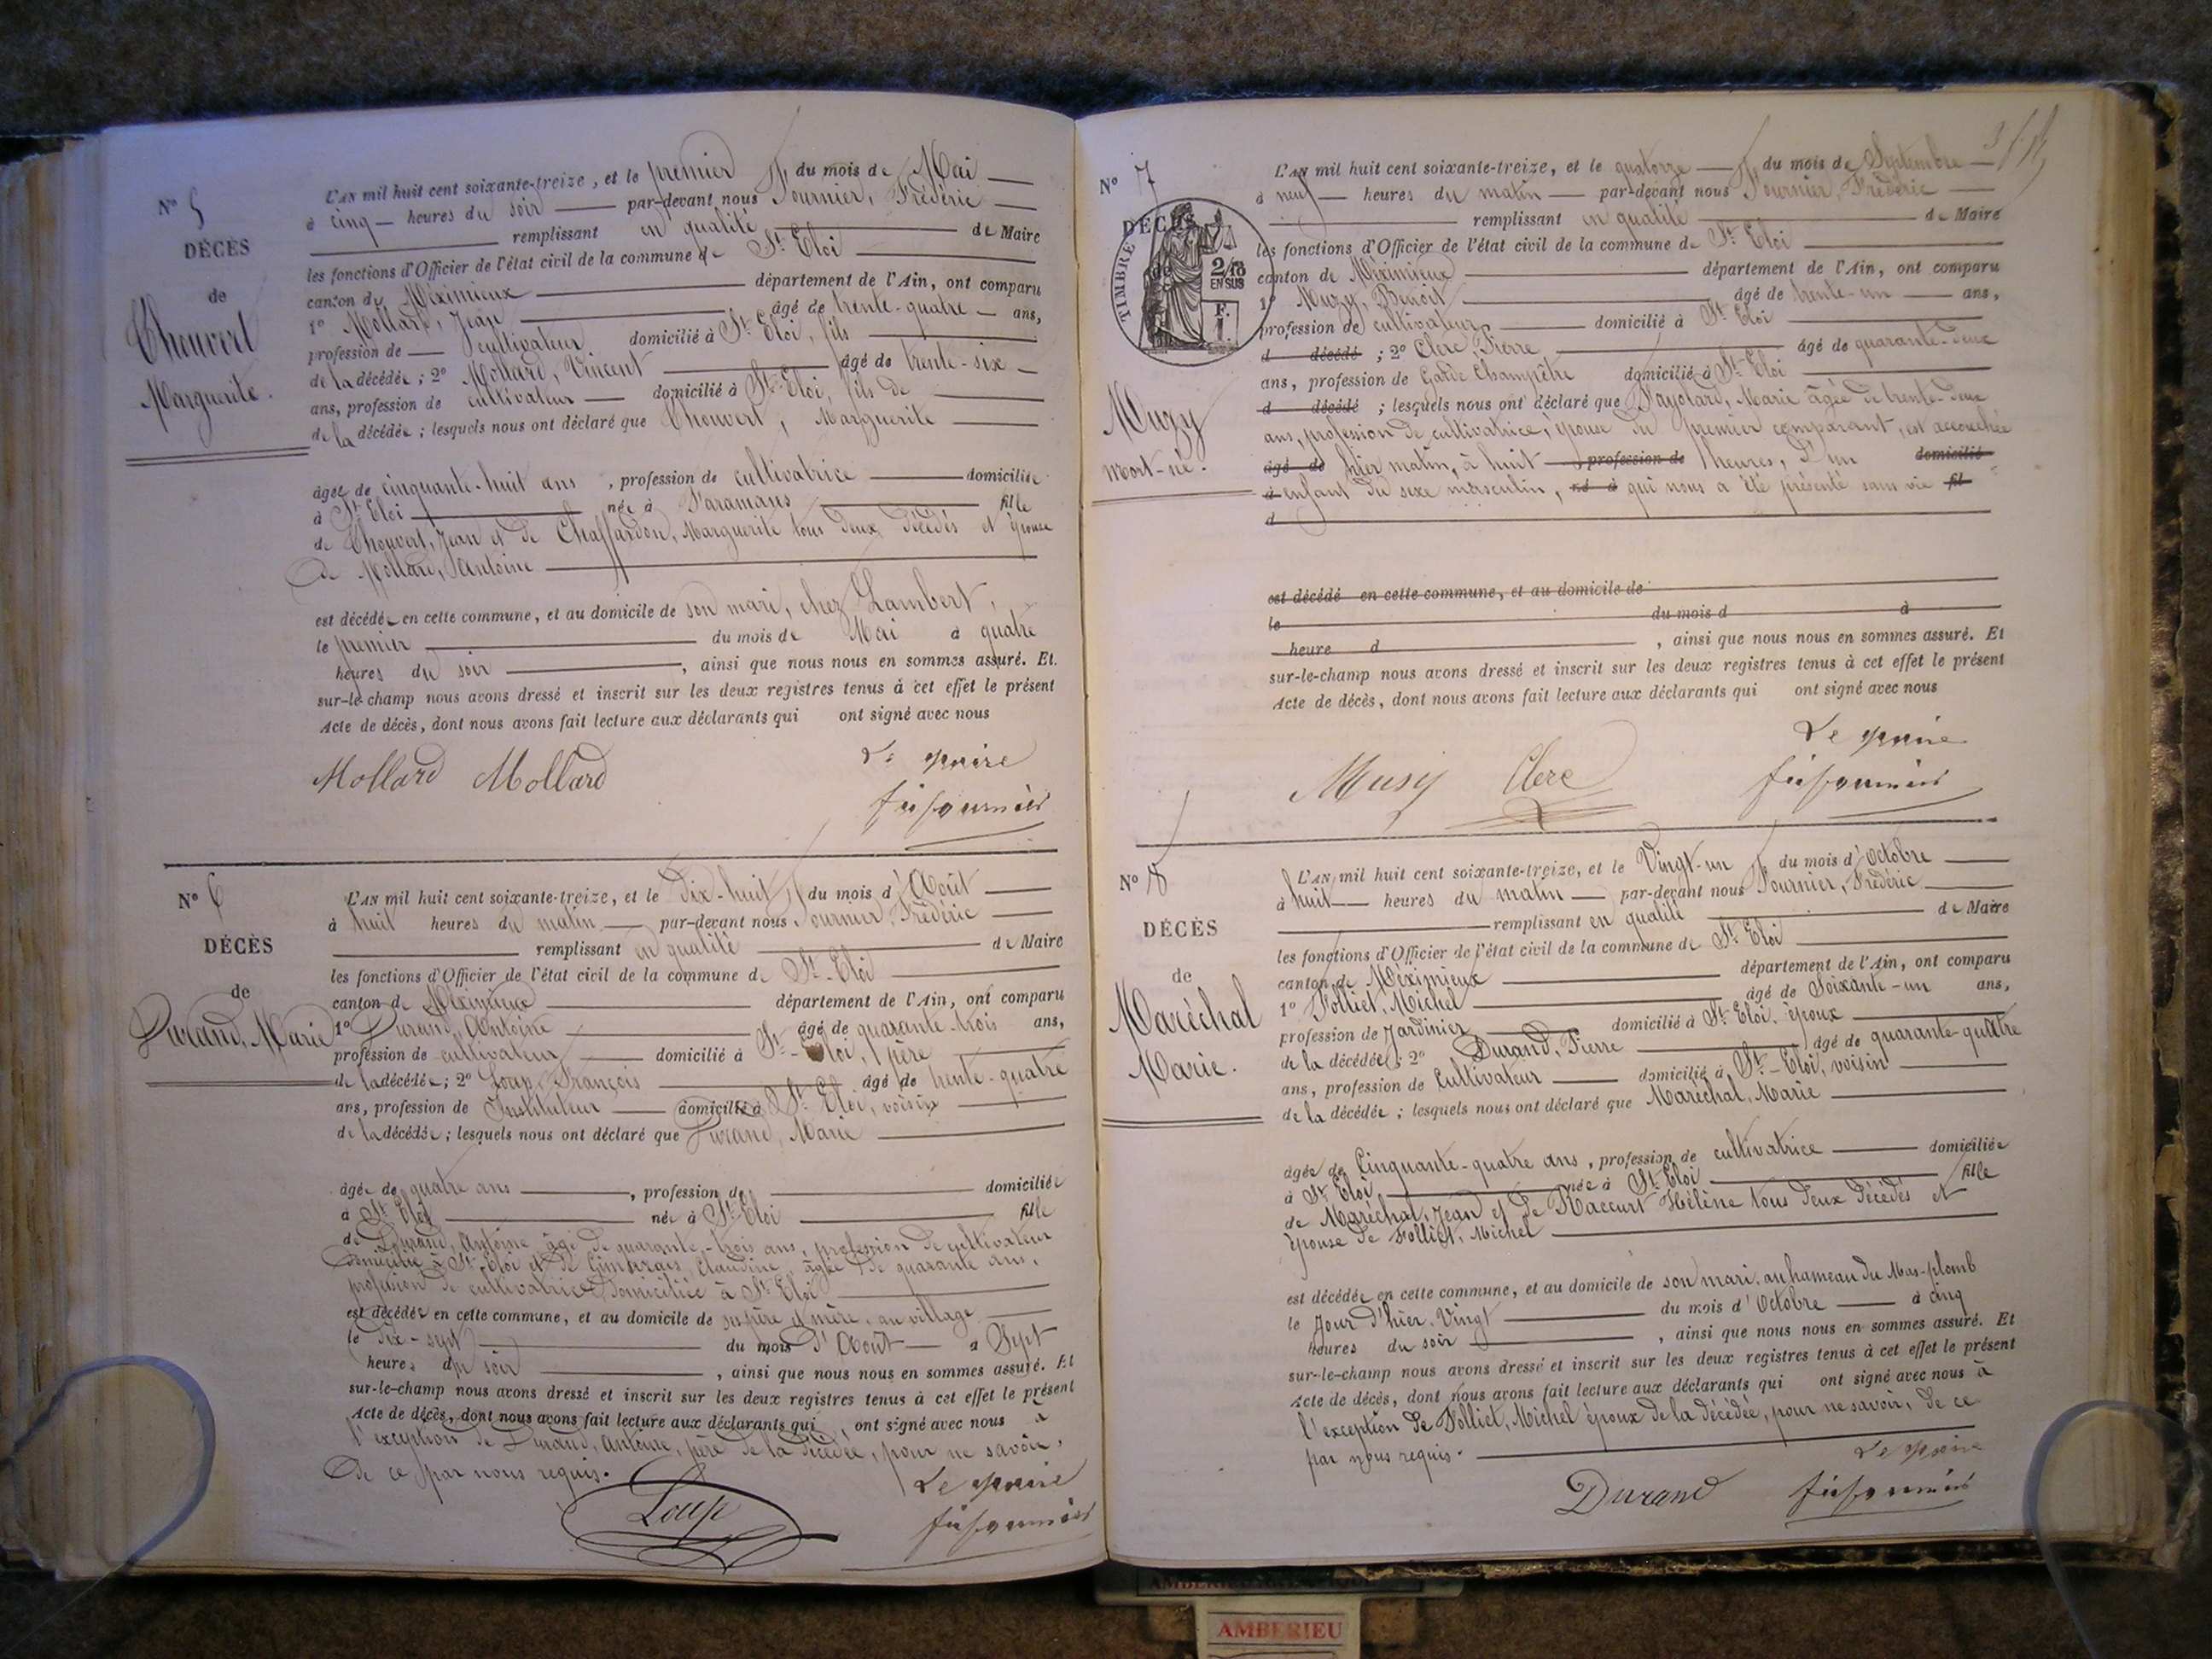 N° 5
DÉCÈS
de
Chouvert
Marguerite.
L'AN mil huit cent soixante-treize, et le premier du mois de Mai
à cinq heures du soir par-devant nous Fournier, Frédéric
remplissant en qualité de Maire
les fonctions d'Officier de l'état civil de la commune de St Eloi
canton de Méximieux département de l'Ain, ont comparu
1° Mollard, Jean âgé de trente-quatre ans,
profession de cultivateur domicilié à St Eloi, fils
de la décédée ; 2° Mollard, Vincent âgé de trente-six
ans, profession de cultivateur domicilié à St-Eloi, fils de
de la décédée ; lesquels nous ont déclaré que Chouvert, Marguerite
âgée de cinquante-huit ans, profession de cultivatrice domiciliée
à St Eloi née à Faramans fille
de Chouvert, Jean et de Chaffardon, Marguerite tous deux décédés et épouse
de Mollard, Antoine
est décédée en cette commune, et au domicile de son mari, chez Lambert,
le premier du mois de Mai à quatre
heures du soir, ainsi que nous nous en sommes assuré. Et
sur-le-champ nous avons dressé et inscrit sur les deux registres tenus à cet effet le présent
Acte de décès, dont nous avons fait lecture aux déclarants qui ont signé avec nous
Mollard Mollard
Le maire
N° 6
DÉCÈS
de
Durand, Marie
L'AN mil huit cent soixante-treize, et le Dix-huit du mois d'Août
à huit heures du matin par-devant nous Fournier, Frédéric
remplissant en qualité de Maire
les fonctions d'Officier de l'état civil de la commune de St-Eloi
canton de Méximieux département de l'Ain, ont comparu
1° Durand, Antoine âgé de quarante-trois ans,
profession de cultivateur domicilié à St-Eloi, père
de la décédée ; 2° Loup, François âgé de trente-quatre
ans, profession de Instituteur domicilié à St Eloi, voisin
de la décédée ; lesquels nous ont déclaré que Durand, Marie
âgée de quatre ans, profession de domiciliée
à St Eloi née à St Eloi fille
de Durand, Antoine âgé de quarante-trois ans, profession de cultivateur
domicilié à St-Eloi et de Claudine, âgée de quarante ans,
profession de cultivatrice domiciliée à St Eloi
est décédée en cette commune, et au domicile de ses père et mère, au village
le dix-sept du mois d'Août à Sept
heures du soir, ainsi que nous nous en sommes assuré. Et
sur-le-champ nous avons dressé et inscrit sur les deux registres tenus à cet effet le présent
Acte de décès, dont nous avons fait lecture aux déclarants qui ont signé avec nous à
l'exception de Durand, Antoine, père de la décédée, pour ne savoir,
de ce par nous requis.
Loup
Le maire
N° 7
DÉCÈS
de
TIMBRE
2/10
EN SUS
F.
1.
Muzy
mort-né.
L'AN mil huit cent soixante-treize, et le quatorze du mois de Septembre
à neuf heures du matin par-devant nous Fournier, Frédéric
remplissant en qualité de Maire
les fonctions d'Officier de l'état civil de la commune de St Eloi
canton de Méximieux département de l'Ain, ont comparu
1° Muzy, Benoit âgé de trente-un ans,
profession de cultivateur domicilié à St Eloi
d décédé ; 2° Clerc, Pierre âgé de quarante-deux
ans, profession de Garde Champêtre domicilié à St Eloi
d décédé ; lesquels nous ont déclaré que Payolard, Marie âgée de trente-deux
ans, profession de cultivatrice, épouse du premier comparant, est accouchée
âgé de hier matin, à huit profession de heures, d'un domicilié
à enfant du sexe masculin, né à qui nous a été présenté sans vie fil
d
est décédé en cette commune, et au domicile de
le du mois d à
heure d, ainsi que nous nous en sommes assuré. Et
sur-le-champ nous avons dressé et inscrit sur les deux registres tenus à cet effet le présent
Acte de décès, dont nous avons fait lecture aux déclarants qui ont signé avec nous
Le maire
Musy Clerc
N° 8
DÉCÈS
de
Maréchal
Marie.
L'AN mil huit cent soixante-treize, et le Vingt-un du mois d'Octobre
à huit heures du matin par-devant nous Fournier, Frédéric
remplissant en qualité de Maire
les fonctions d'Officier de l'état civil de la commune de St Eloi
canton de Méximieux département de l'Ain, ont comparu
1° Folliet, Michel âgé de Soixante-un ans,
profession de Jardinier domicilié à St Eloi, époux
de la décédée ; 2° Durand, Pierre âgé de quarante-quatre
ans, profession de Cultivateur domicilié à St-Eloi, voisin
de la décédée ; lesquels nous ont déclaré que Maréchal, Marie
âgée de Cinquante-quatre ans, profession de cultivatrice domiciliée
à St Eloi née à St Eloi fille
de Maréchal, Jean et de Raccurt Hélène tous deux décédés et
épouse de Folliet, Michel
est décédée en cette commune, et au domicile de son mari, au hameau du Mas-plomb
le Jour d'hier, Vingt du mois d'Octobre à cinq
heures du soir, ainsi que nous nous en sommes assuré. Et
sur-le-champ nous avons dressé et inscrit sur les deux registres tenus à cet effet le présent
Acte de décès, dont nous avons fait lecture aux déclarants qui ont signé avec nous à
l'exception de Folliet, Michel époux de la décédée, pour ne savoir, de ce
par nous requis.
Le maire
Durand
AMBERIEU